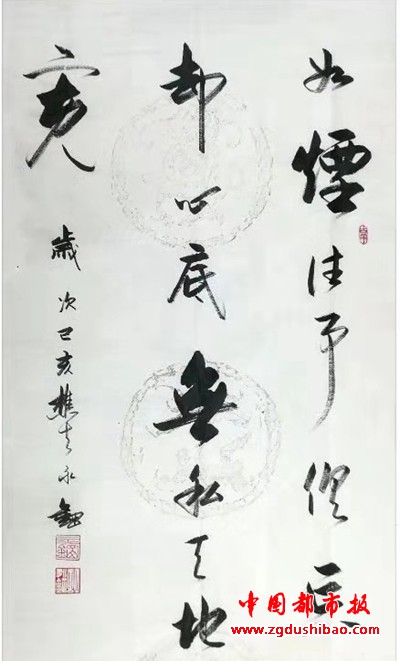 如煙往事俱忘
却心底無私天地
寬
歲次己亥樵夫永
中国都市报
www.zgdushibao.com